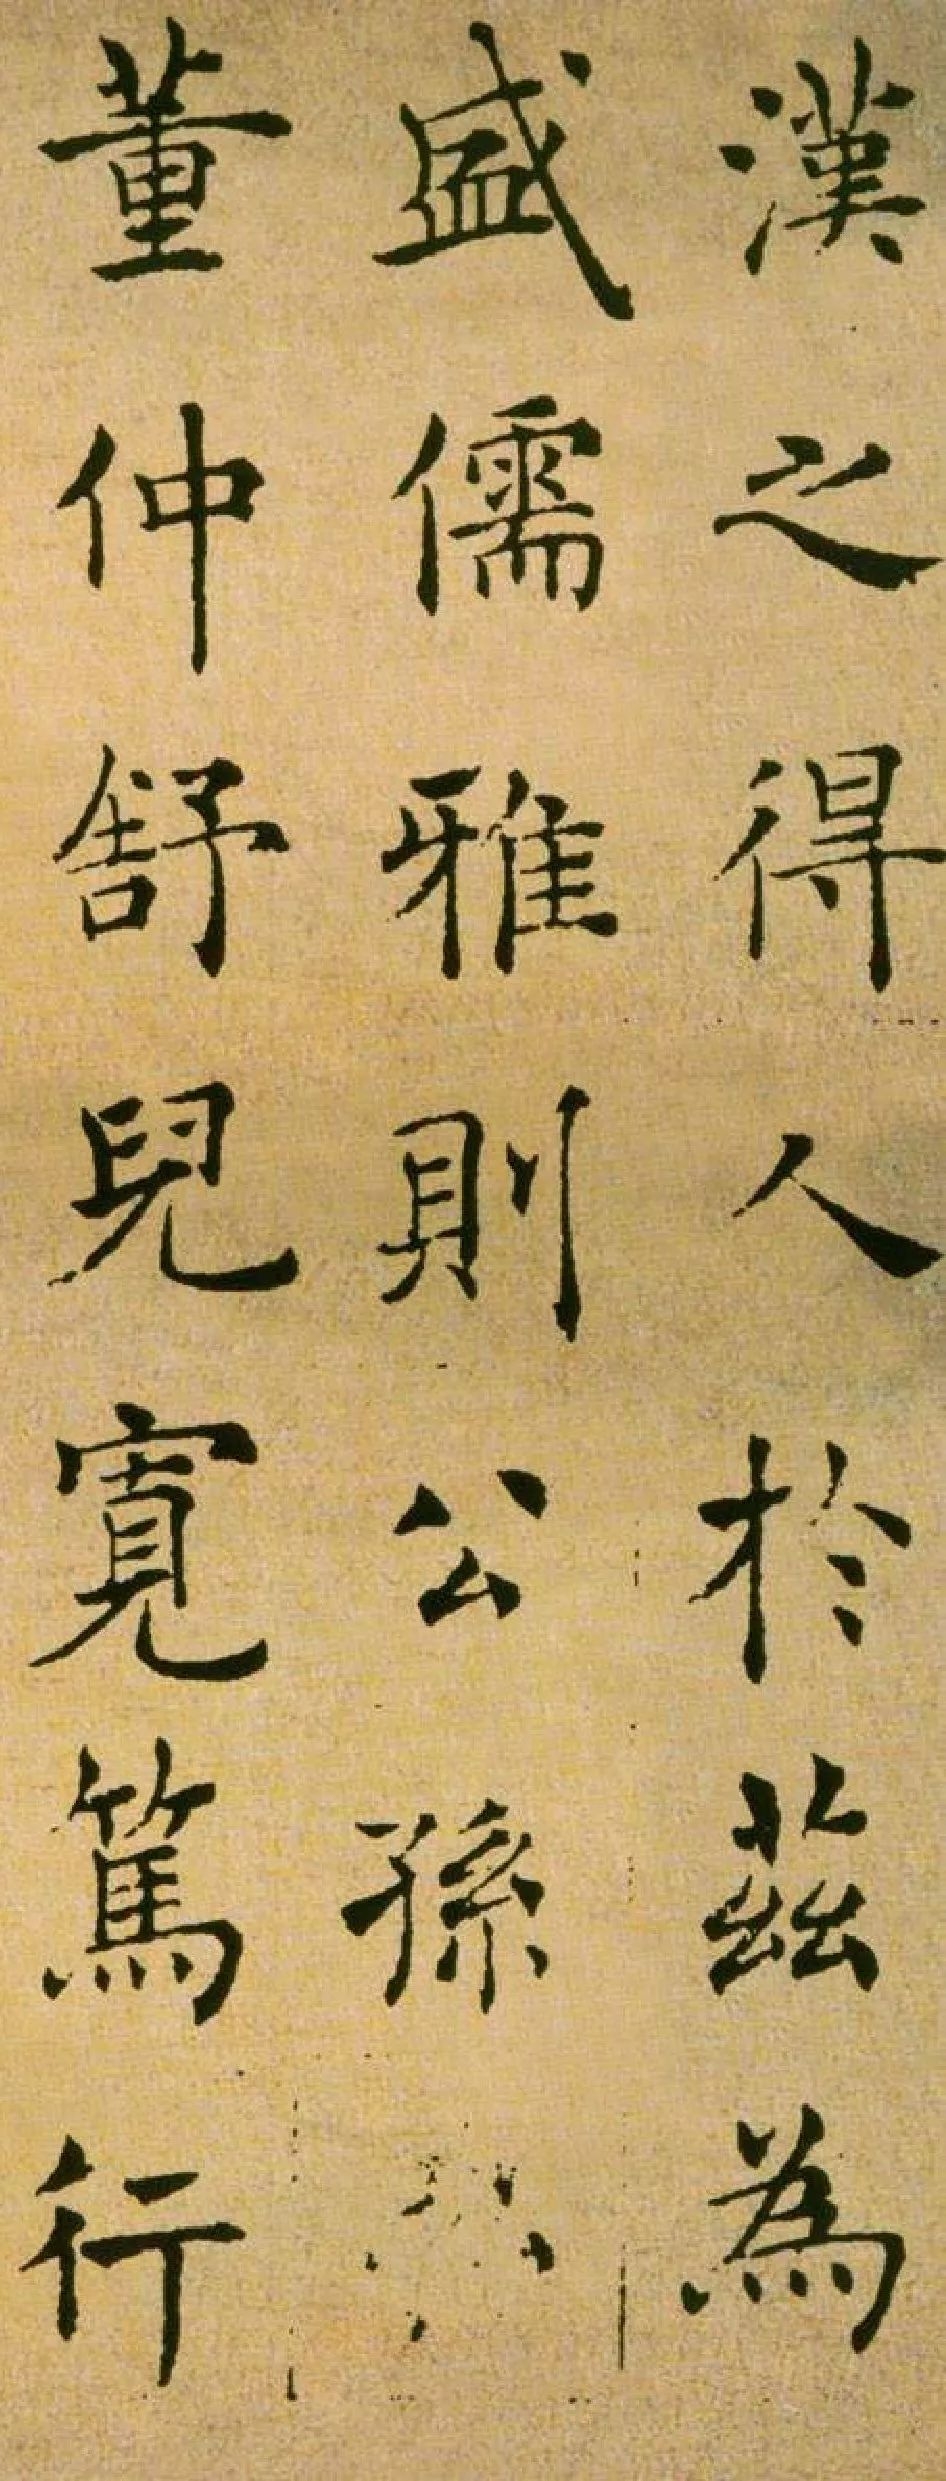 漢之得人於茲為
盛儒雅則公孫
董仲舒兒寬篤行